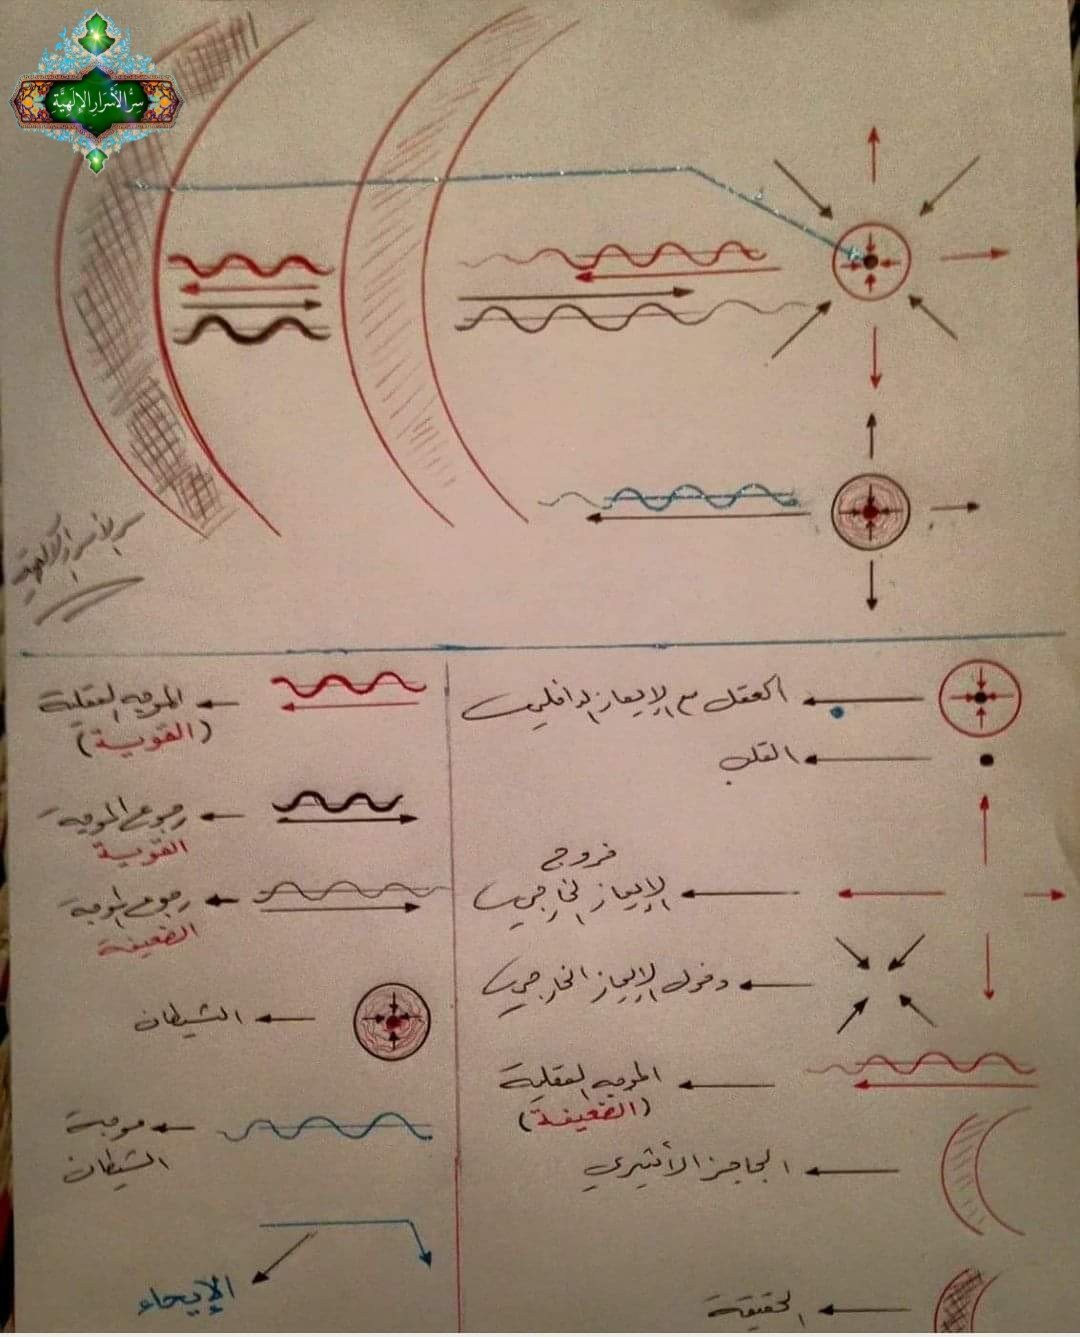 سِرُّ الأَسْرَارِ الإِلَهِيَّة
سر الأسرار الإلهية
العقل مع الإيعاز الداخلي
القلب
خروج
الإيعاز الخارجي
دخول الإيعاز الخارجي
الموجه العقلية
(الضعيفة)
الحاجز الأثيري
الحقيقة
الموجه العقلية
(القوية)
رجوع الموجة
القوية
رجوع الموجة
الضعيفة
الشيطان
موجة
الشيطان
الإيحاء